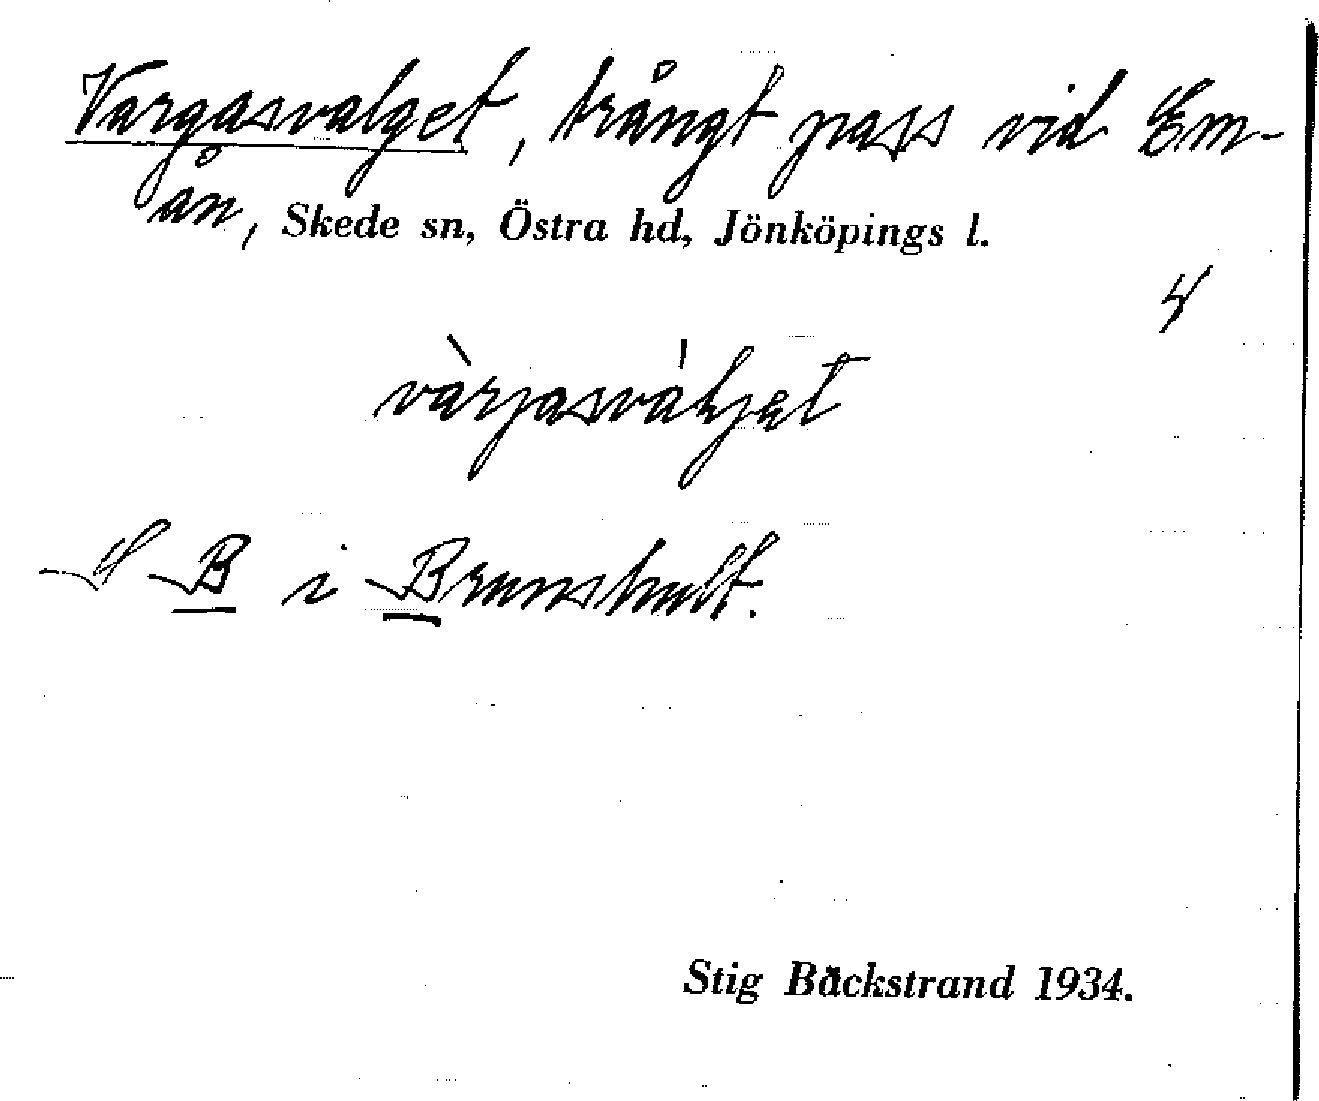 Vargasvalget, trångt pass vid Em-
ån, Skede sn, Östra hd, Jönköpings l.
4
vàrjasváljet
B i Brunshult.
Stig Bäckstrand 1934.